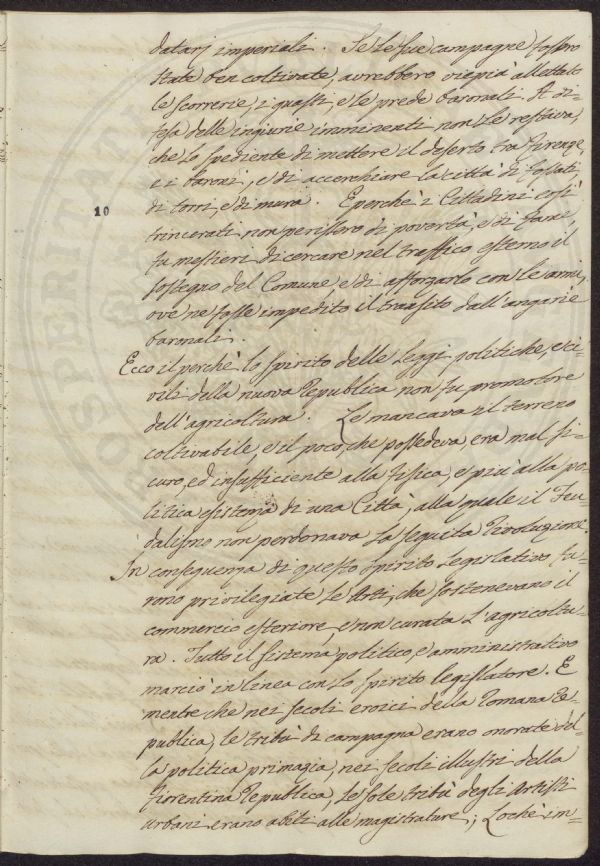 datarj imperiali. Se le sue campagne fossero
state ben coltivate, avrebbero viepiù allettato
le scorrerie, i guasti, e le prede baronali. A di-
fesa delle ingiurie imminenti non le restava,
che lo spediente di mettere il deserto tra Firenze,
e i Baroni, e di accerchiare la città di fossati,
di torri, e di mura. E perchè i Cittadini così
10
trincerati non perissero di povertà, e di fame,
fu mestieri di cercare nel traffico esterno il
sostegno del Comune e di afforzarlo con le armi,
ove ne fosse impedito il transito dall'angarie
baronali.
Ecco il perchè lo spirito delle Leggi politiche, e ci-
vili della nuova Republica non fu promotore
dell'agricoltura. Le mancava il terreno
coltivabile, e il poco, che possedeva, era mal si-
curo, ed insufficiente alla fisica, e più alla po-
litica esistenza di una Città, alla quale il Feu-
dalismo non perdonava la seguita Rivoluzione.
In conseguenza di questo Spirito Legislativo fu-
rono privilegiate le Arti, che sostenevano il
commercio esteriore, e non curata l'agricoltu-
ra. Tutto il sistema politico, e amministrativo
marciò in linea con lo spirito legislatore. E
mentre che nei secoli eroici della Romana Re-
publica, le tribù di campagna erano onorate del-
la politica primazia, nei secoli illustri della
Fiorentina Republica, le sole tribù degli Artisti
urbani erano abili alle magistrature; Lochè im-
PROSPERITATI